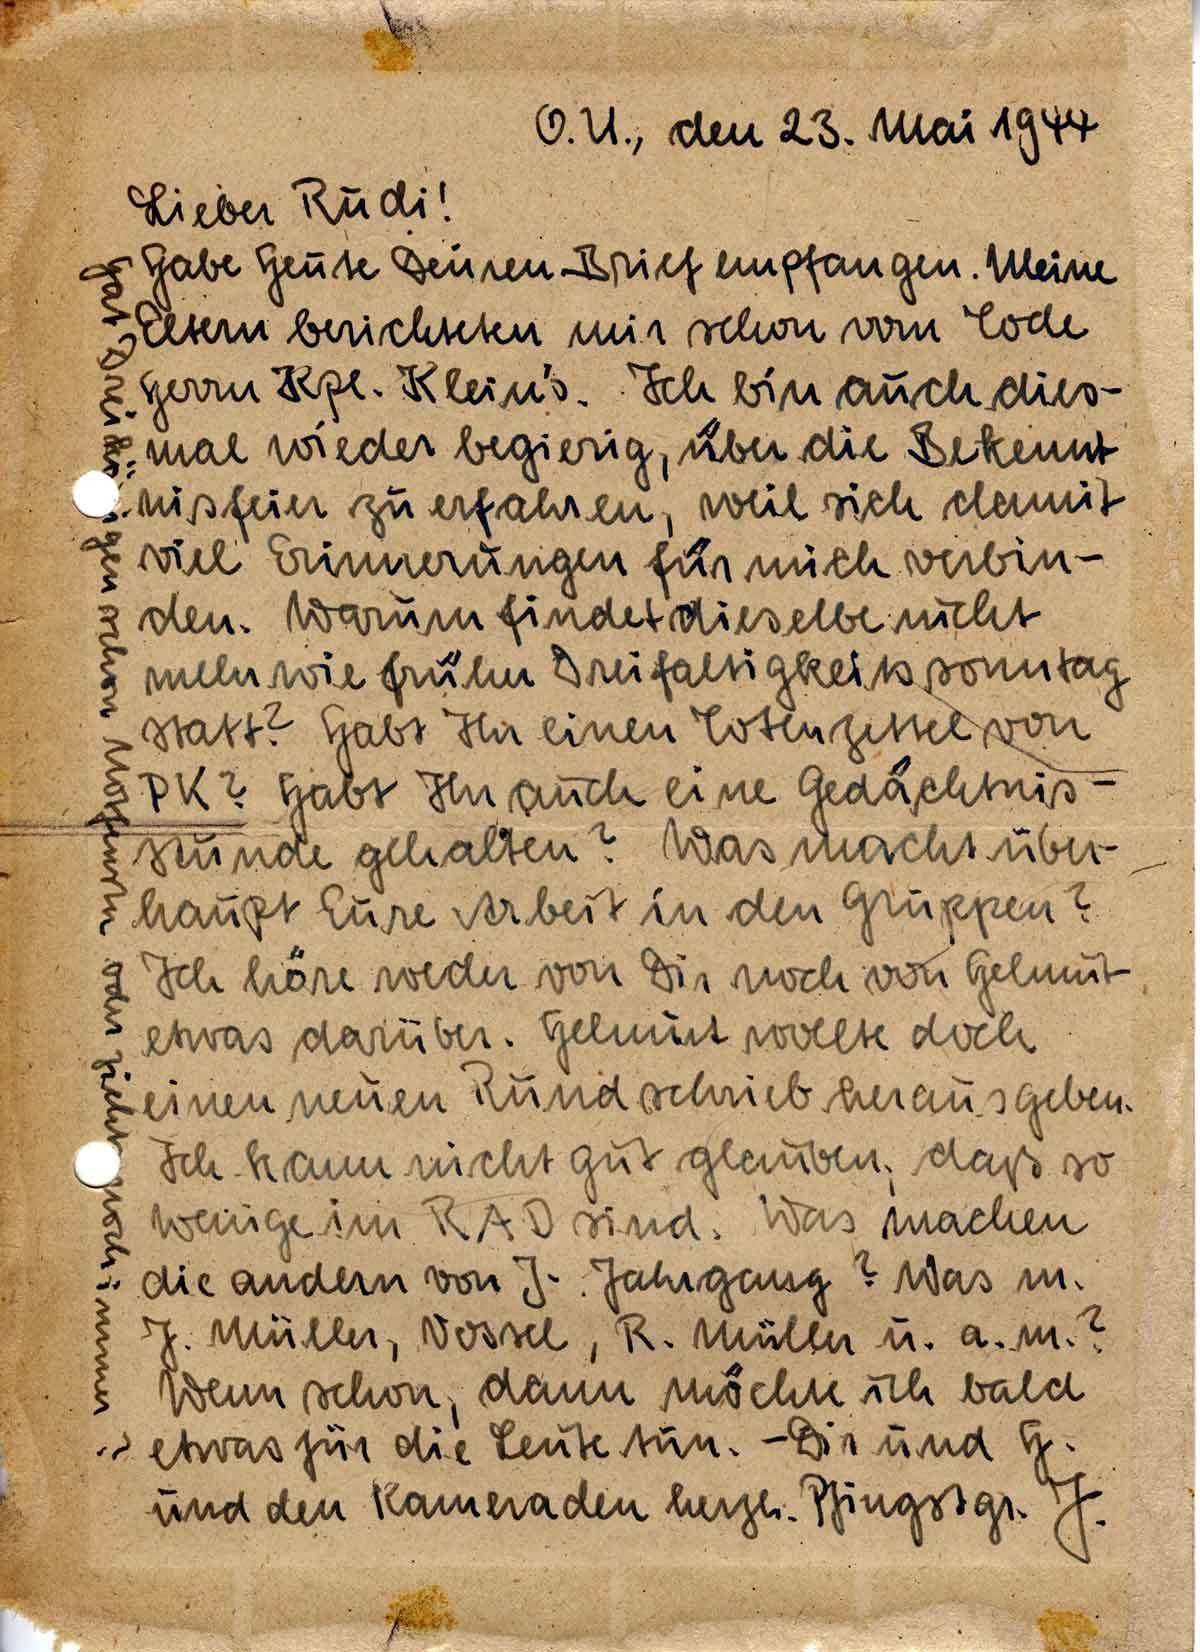 O.U., den 23. Mai 1944
Lieber Rudi!
Habe heute Deinen Brief empfangen. Meine
Eltern berichteten mir schon vom Tode
Herrn Kpl. Klein's. Ich bin auch dies-
mal wieder begierig, über die Bekennt
nisfeier zu erfahren, weil sich damit
viel Erinnerungen für mich verbin-
den. Warum findet dieselbe nicht
mehr wie früher Dreifaltigkeitssonntag
statt? Habt Ihr einen Totenzettel von
PK? Habt Ihr auch eine Gedächtnis-
stunde gehalten? Was macht über-
haupt Eure Arbeit in den Gruppen?
Ich höre weder von Dir noch von Helmut
etwas darüber. Helmut wollte doch
einen neuen Rundschrieb herausgeben.
Ich kann nicht gut glauben, daß so
wenige im RAD sind. Was machen
die andern von J. Jahrgang? Was m.
J. Müller, Vossel, R. Müller u. a. m.?
Wenn schon, dann möchte ich bald
etwas für die Leute tun. – Dir und H.
und den Kameraden herzl. Pfingstgr. J.
Hat Dreikönigen schon oder nicht noch immer